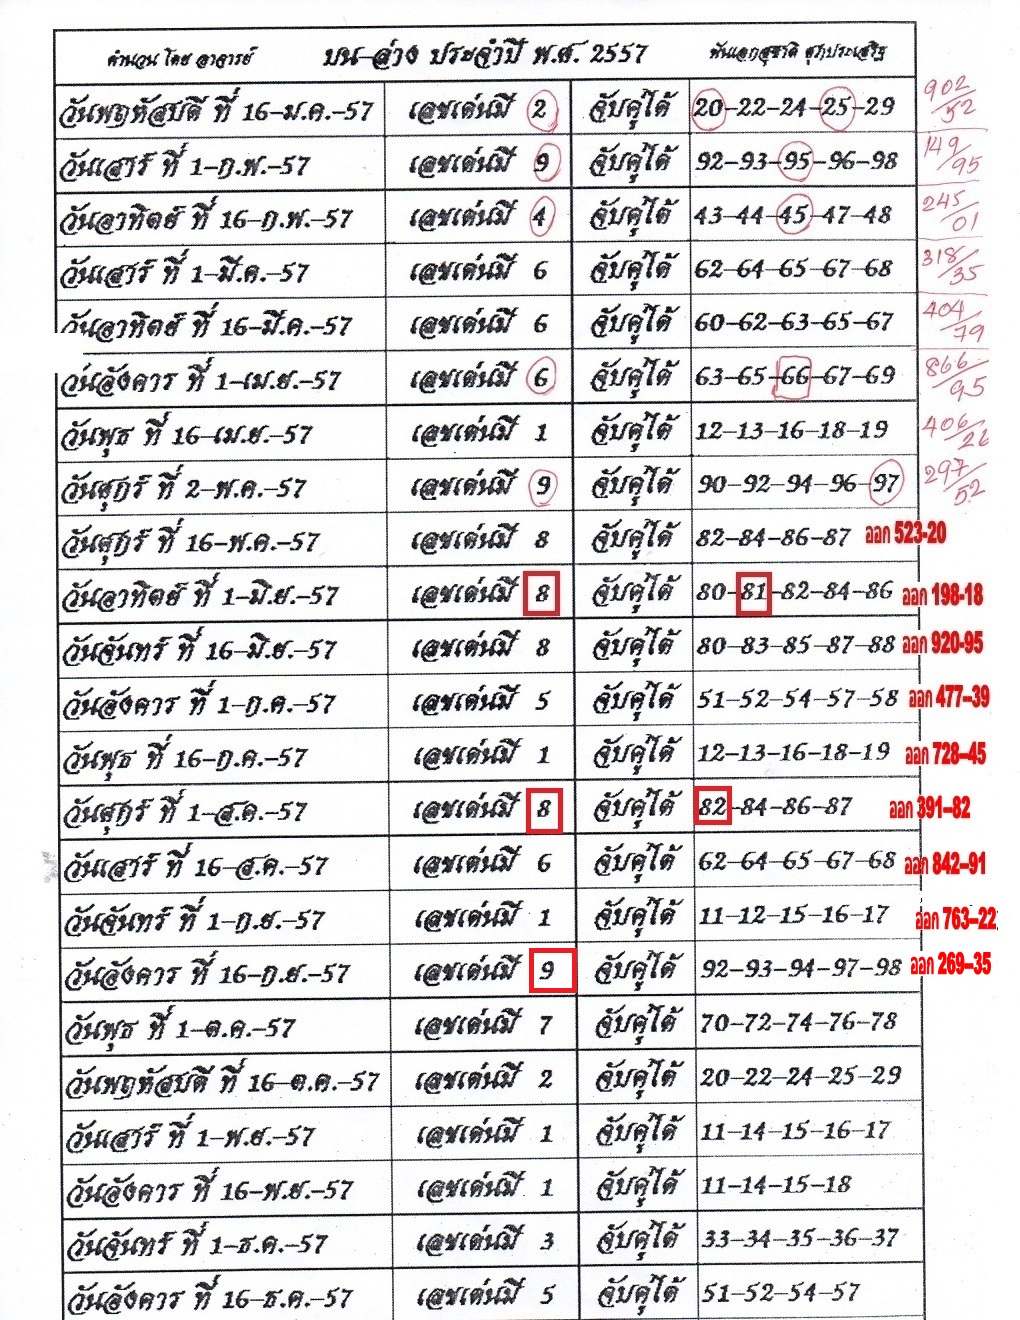 คำนวน โดย อาจารย์ บน-ล่าง ประจำปี พ.ศ. 2557 พันเอกสุชาติ สุภประเสริฐ
วันพฤหัสบดี ที่ 16-ม.ค.-57 เลขเด่นมี 2 จับคู่ได้ 20-22-24-25-29 902/52
วันเสาร์ ที่ 1-ก.พ.-57 เลขเด่นมี 9 จับคู่ได้ 92-93-95-96-98 149/95
วันอาทิตย์ ที่ 16-ก.พ.-57 เลขเด่นมี 4 จับคู่ได้ 43-44-45-47-48 245/01
วันเสาร์ ที่ 1-มี.ค.-57 เลขเด่นมี 6 จับคู่ได้ 62-64-65-67-68 318/35
วันอาทิตย์ ที่ 16-มี.ค.-57 เลขเด่นมี 6 จับคู่ได้ 60-62-63-65-67 404/79
วันอังคาร ที่ 1-เม.ย.-57 เลขเด่นมี 6 จับคู่ได้ 63-65-66-67-69 866/95
วันพุธ ที่ 16-เม.ย.-57 เลขเด่นมี 1 จับคู่ได้ 12-13-16-18-19 406/
วันศุกร์ ที่ 2-พ.ค.-57 เลขเด่นมี 9 จับคู่ได้ 90-92-94-96-97 297/52
วันศุกร์ ที่ 16-พ.ค.-57 เลขเด่นมี 8 จับคู่ได้ 82-84-86-87 ออก 523-20
วันอาทิตย์ ที่ 1-มิ.ย.-57 เลขเด่นมี 8 จับคู่ได้ 80-81-82-84-86 ออก 198-18
วันจันทร์ ที่ 16-มิ.ย.-57 เลขเด่นมี 8 จับคู่ได้ 80-83-85-87-88 ออก 920-95
วันอังคาร ที่ 1-ก.ค.-57 เลขเด่นมี 5 จับคู่ได้ 51-52-54-57-58 ออก 477-39
วันพุธ ที่ 16-ก.ค.-57 เลขเด่นมี 1 จับคู่ได้ 12-13-16-18-19 ออก 728-45
วันศุกร์ ที่ 1-ส.ค.-57 เลขเด่นมี 8 จับคู่ได้ 82-84-86-87 ออก 391-82
วันเสาร์ ที่ 16-ส.ค.-57 เลขเด่นมี 6 จับคู่ได้ 62-64-65-67-68 ออก 842-91
วันจันทร์ ที่ 1-ก.ย.-57 เลขเด่นมี 1 จับคู่ได้ 11-12-15-16-17 ออก 763-22
วันอังคาร ที่ 16-ก.ย.-57 เลขเด่นมี 9 จับคู่ได้ 92-93-94-97-98 ออก 269-35
วันพุธ ที่ 1-ต.ค.-57 เลขเด่นมี 7 จับคู่ได้ 70-72-74-76-78
วันพฤหัสบดี ที่ 16-ต.ค.-57 เลขเด่นมี 2 จับคู่ได้ 20-22-24-25-29
วันเสาร์ ที่ 1-พ.ย.-57 เลขเด่นมี 1 จับคู่ได้ 11-14-15-16-17
วันอังคาร ที่ 16-พ.ย.-57 เลขเด่นมี 1 จับคู่ได้ 11-14-15-18
วันจันทร์ ที่ 1-ธ.ค.-57 เลขเด่นมี 3 จับคู่ได้ 33-34-35-36-37
วันอังคาร ที่ 16-ธ.ค.-57 เลขเด่นมี 5 จับคู่ได้ 51-52-54-57